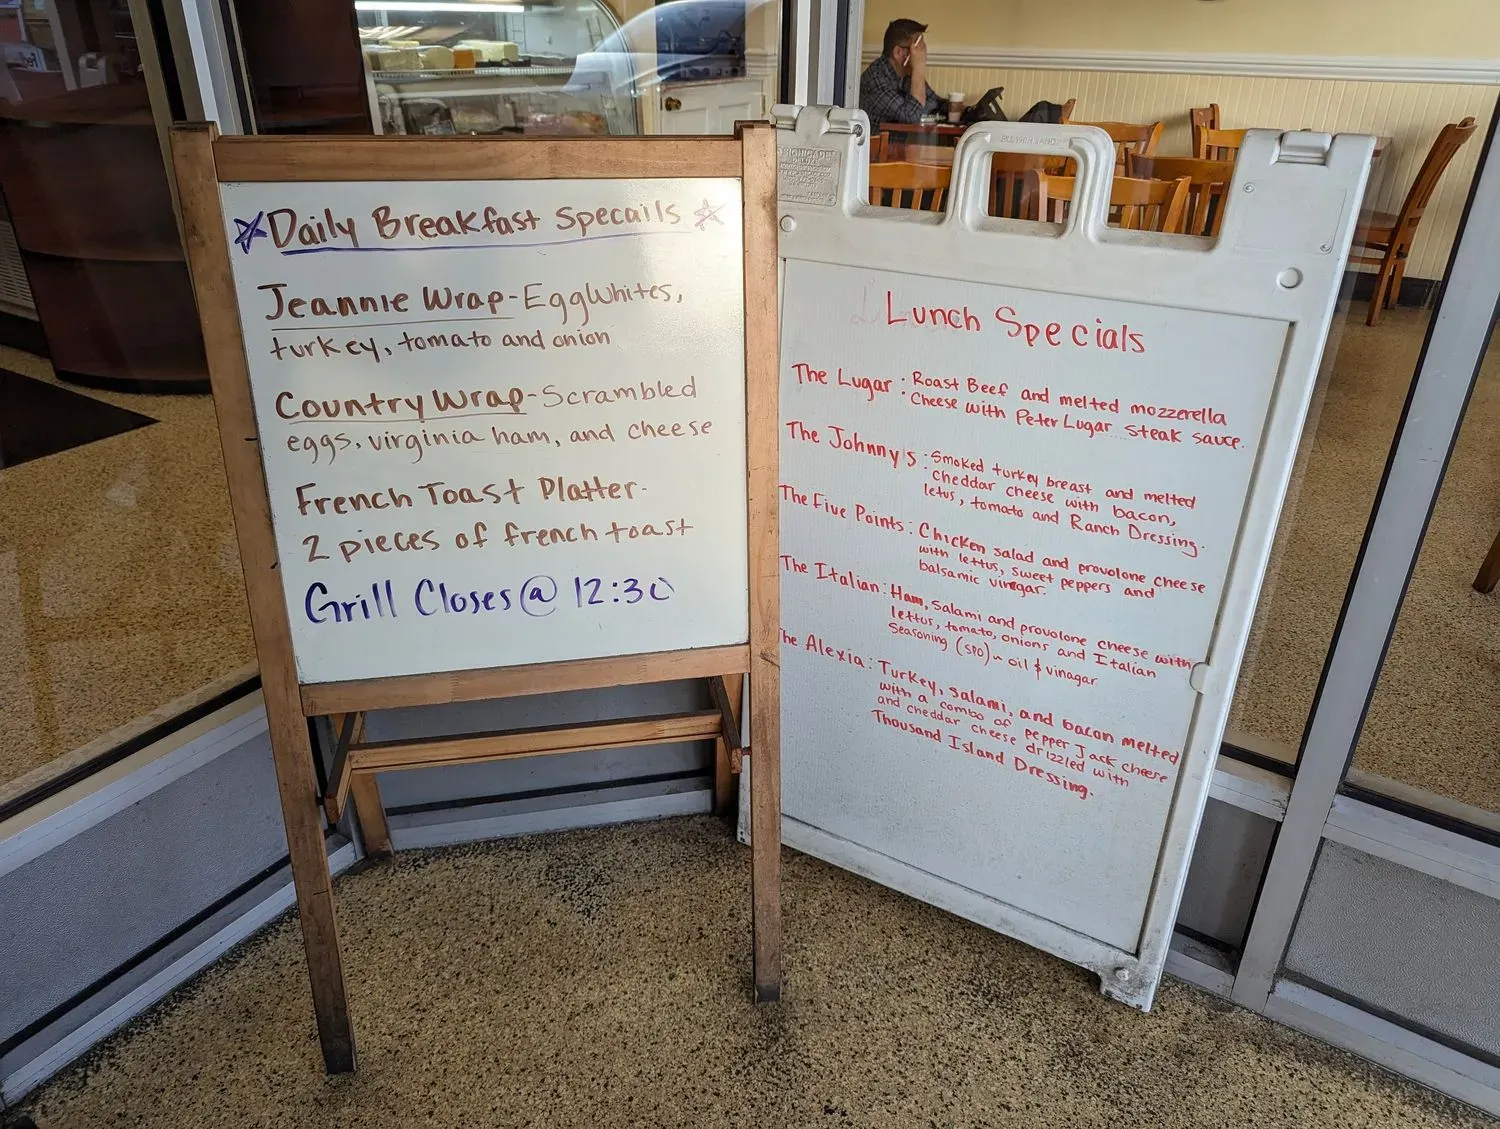 Daily Breakfast Specails
Jeannie Wrap - Egg Whites,
turkey, tomato and onion
Country Wrap - Scrambled
eggs, virginia ham, and cheese
French Toast Platter -
2 pieces of french toast
Grill Closes @ 12:30
Lunch Specials
The Lugar : Roast Beef and melted mozzerella
Cheese with Peter Lugar steak sauce.
The Johnny's : Smoked turkey breast and melted
cheddar cheese with bacon,
letus, tomato and Ranch Dressing.
The Five Points : Chicken salad and provolone cheese
with lettus, sweet peppers and
balsamic vinegar.
The Italian : Ham, salami and provolone cheese with
lettus, tomato, onions and Italian
Seasoning (SPO) ~ oil & vinagar
The Alexia : Turkey, salami, and bacon melted
with a combo of pepper Jack cheese
and cheddar cheese drizzled with
Thousand Island Dressing.